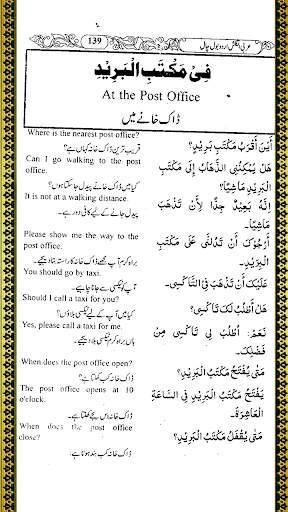 139
عربی انگلش اردو بول چال
فِیْ مَکْتَبِ الْبَرِیْدِ
At the Post Office
ڈاک خانے میں
Where is the nearest post office?
قریب ترین ڈاک خانہ کہاں ہے؟
أَیْنَ أَقْرَبُ مَکْتَبِ بَرِیْدٍ؟
Can I go walking to the post
office.
کیا میں ڈاک خانے پیدل جا سکتا ہوں؟
هَلْ یُمْکِنُنِی الذَّهَابُ إِلَی مَکْتَبِ
الْبَرِیْدِ مَاشِیًا؟
It is not at a walking distance.
پیدل جانے کے لیے کافی دور ہے۔
إِنَّهُ بَعِیْدٌ جِدًّا لِأَنْ تَذْهَبَ
مَاشِیًا۔
Please show me the way to the
post office.
براہ کرم آپ مجھے ڈاک خانہ کا راستہ بتا دیجیے۔
أَرْجُوْکَ أَنْ تَدُلَّنِیْ عَلَی مَکْتَبِ
الْبَرِیْدِ۔
You should go by taxi.
آپ کو ٹیکسی سے جانا چاہیے۔
عَلَیْکَ أَنْ تَذْهَبَ فِی التَّاکْسِیْ۔
Should I call a taxi for you?
کیا میں آپ کے لیے ٹیکسی بلاؤں؟
هَلْ أَطْلُبُ لَکَ تَاکْسِیْ؟
Yes, please call a taxi for me.
ہاں براہ کرم ٹیکسی بلا دیجیے۔
نَعَمْ، أُطْلُبْ لِی تَاکْسِیْ مِنْ
فَضْلِکَ۔
When does the post office open?
ڈاک خانہ کب کھلتا ہے؟
مَتٰی یُفْتَحُ مَکْتَبُ الْبَرِیْدِ؟
The post office opens at 10
o'clock.
ڈاک خانہ دس بجے کھلتا ہے۔
یُفْتَحُ مَکْتَبُ الْبَرِیْدِ فِی السَّاعَةِ
الْعَاشِرَةِ۔
When does the post office
close?
ڈاک خانہ کب بند ہوتا ہے؟
مَتٰی یُقْفَلُ مَکْتَبُ الْبَرِیْدِ؟